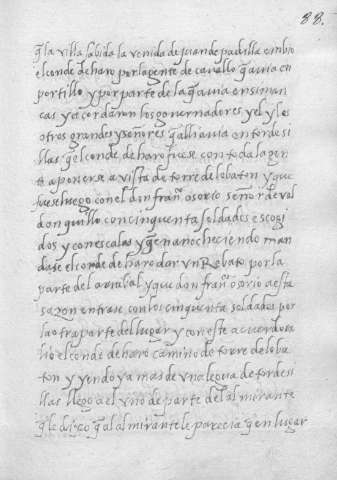 88.
q̃ la villa sabida la venida de juan de padilla embio
el conde de haro por la gente de cavallo q̃ avia en
portillo y por parte de la q̃ avia en siman
cas y acordaron los governadores y el y los
otros grandes y señores q̃ alli avia en tordesi
llas q̃ el conde de haro fuese con toda la gen
te a ponerse a vista de torre de lobaton y que
fuese luego con el don fran^co osorio señor de val
donquillo con cinquenta soldados escogi
dos y con escalas y q̃ en anocheciendo man
dase el conde de haro dar un Rebato por la
parte del arrabal y que don fran^co osorio a esta
sazon entrase con los cinquenta soldados por
la otra parte del lugar y con este acuerdo sa
lio el conde de haro camino de torre de loba
ton y yendo ya mas de una legua de tordesi
llas llego a el uno de parte del almirante
q̃ le dixo q̃ al almirante le parecia q̃ en lugar